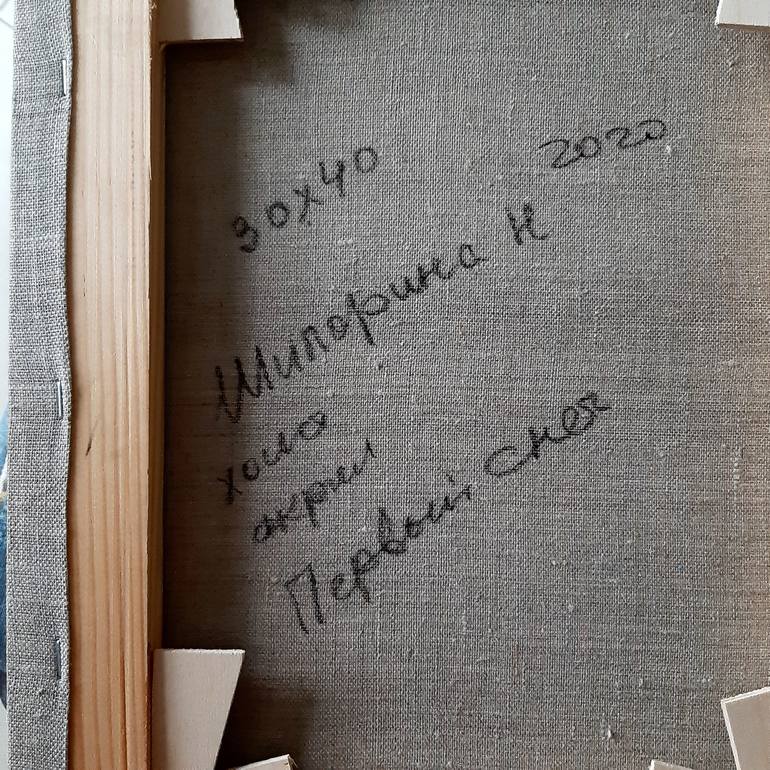 30х40 2020
Шипорина Н
холст
акрил
Первый снег